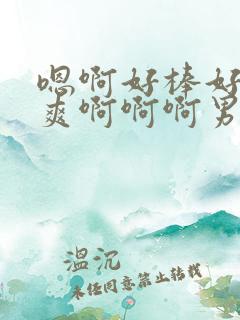 嗯啊好棒好
爽啊啊啊男
温沉
未经同意禁止转载